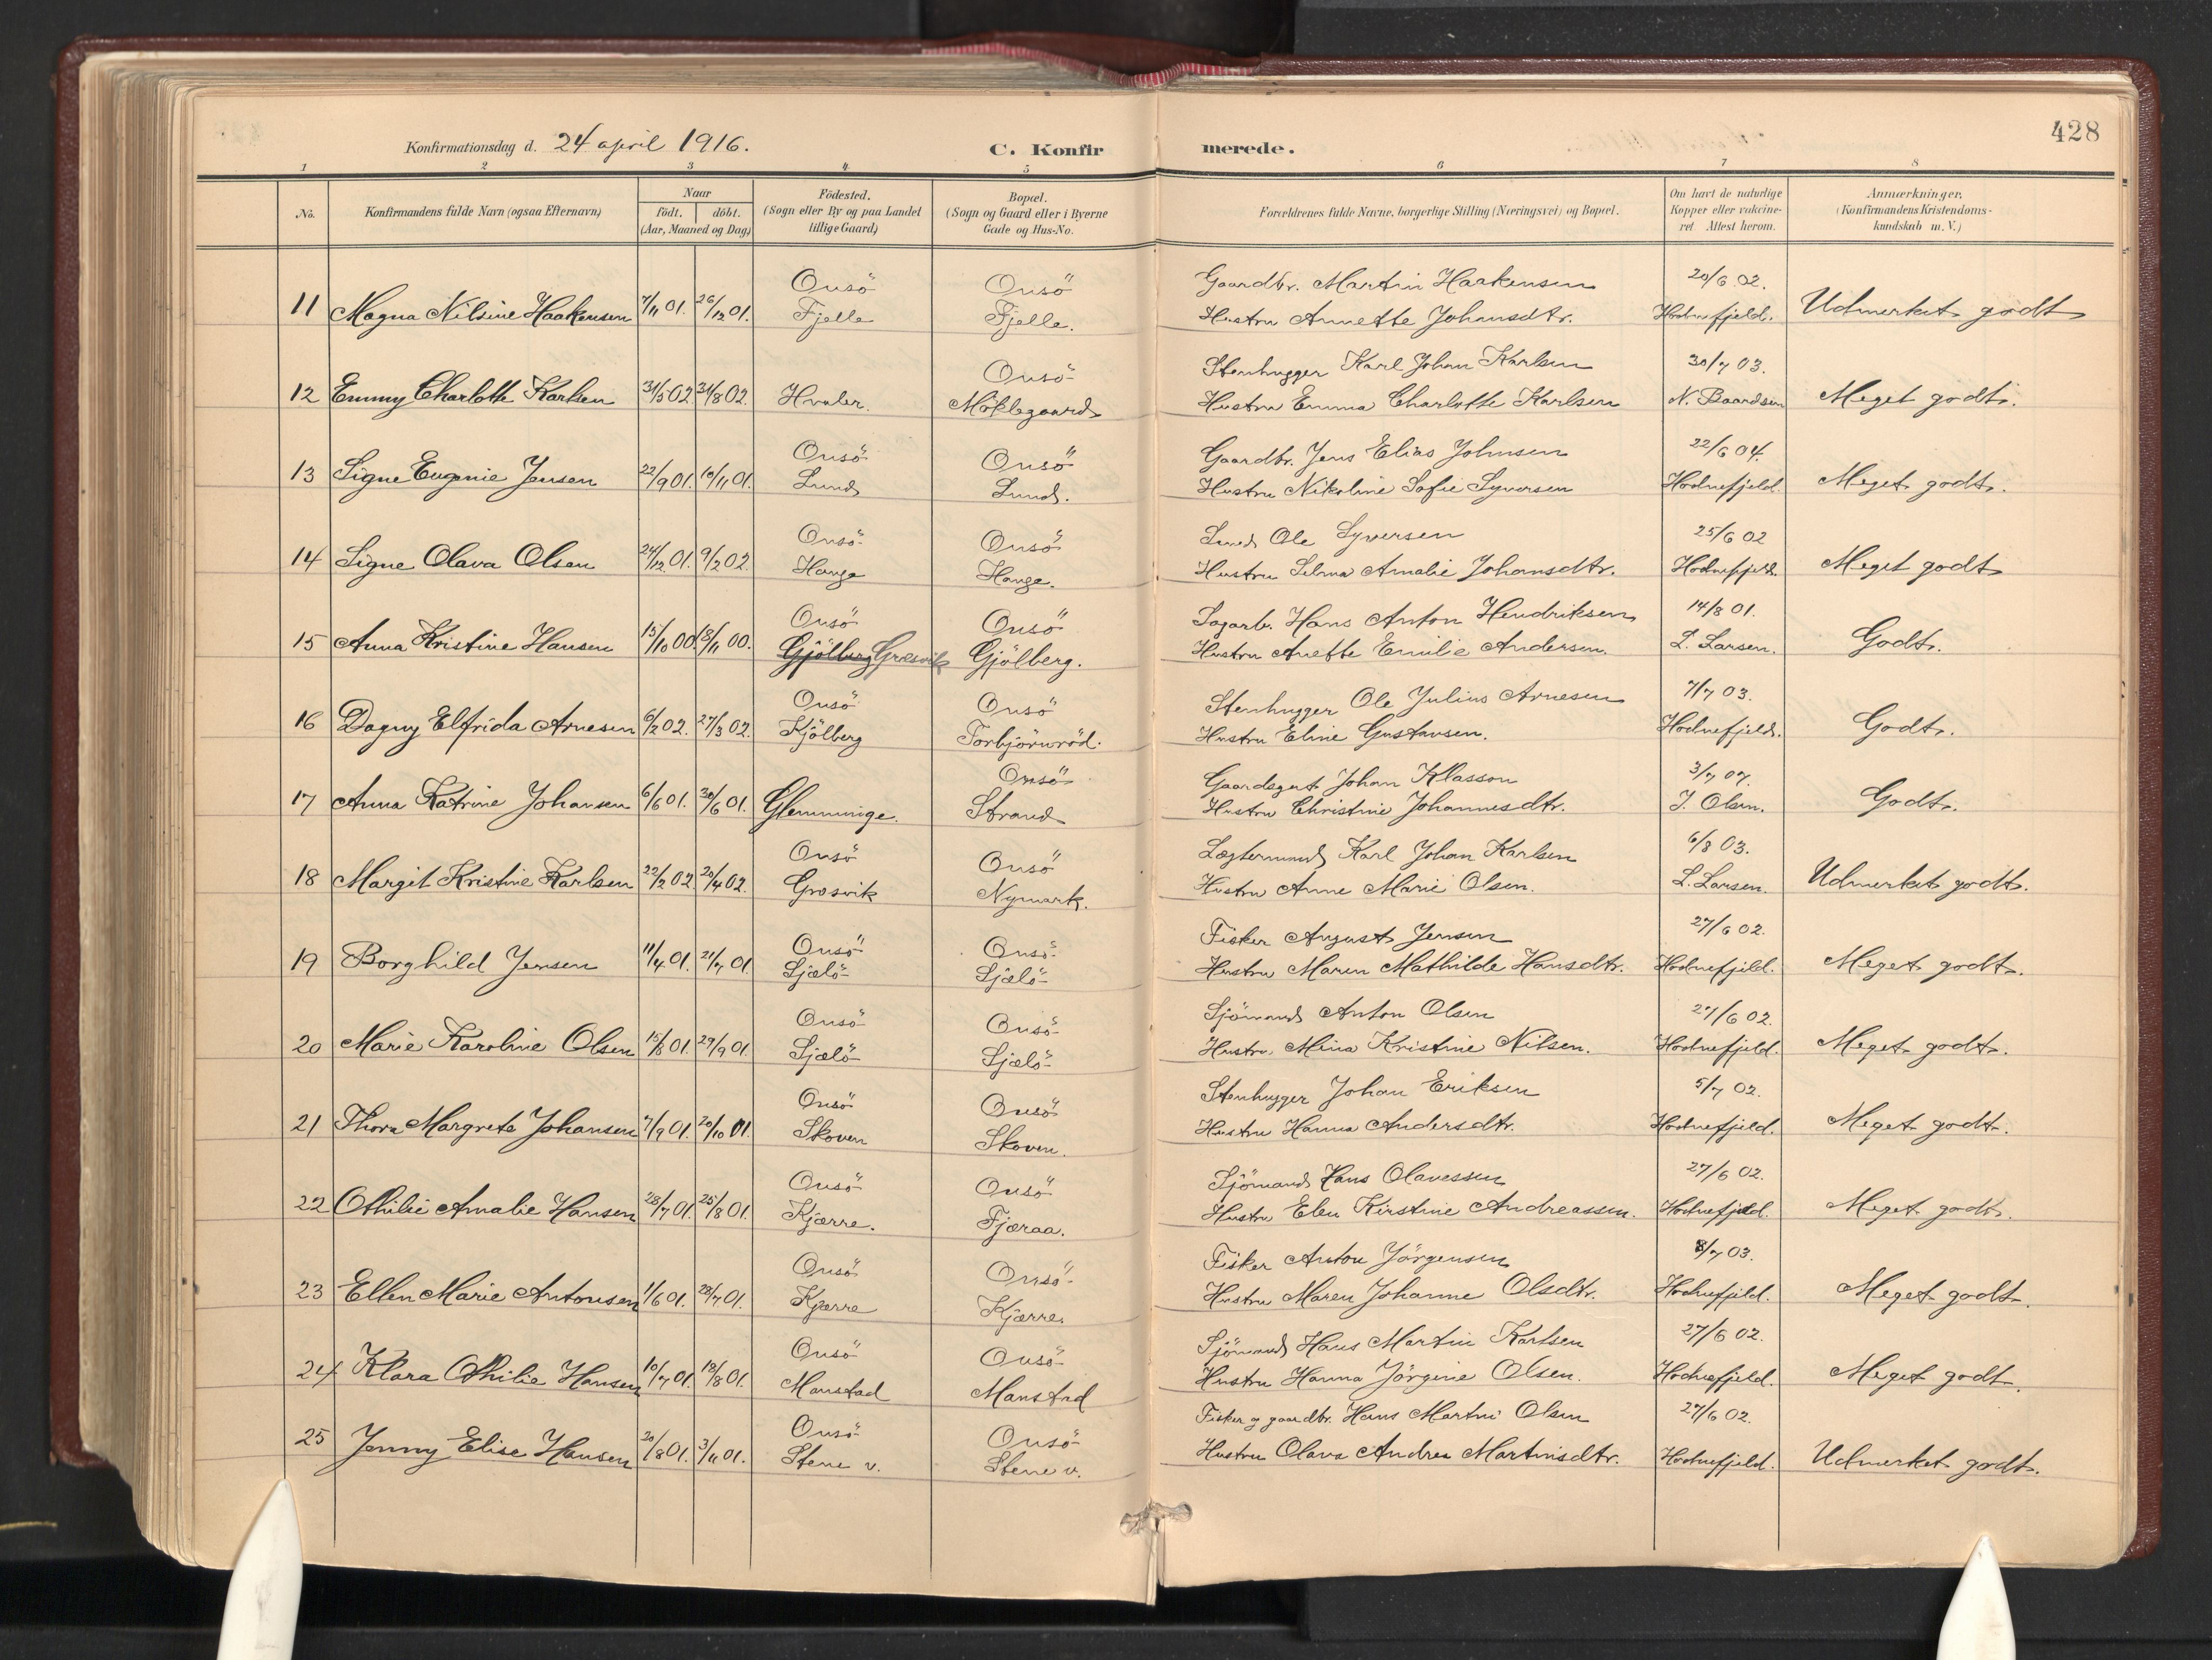 428
Konfirmationsdag d. 24 april 1916.
C. Konfirmerede.
1 2 3 4 5 6 7 8
No.
Konfirmandens fulde Navn (ogsaa Efternavn)
Naar
födt. döbt.
(Aar, Maaned og Dag)
Födested.
(Sogn eller By og paa Landet
tillige Gaard)
Bopæl.
(Sogn og Gaard eller i Byerne
Gade og Hus-No.
Forældrenes fulde Navne, borgerlige Stilling (Næringsvei) og Bopæl.
Om havt de naturlige
Kopper eller vakcine-
ret. Attest herom.
Anmærkninger.
(Konfirmandens Kristendoms-
kundskab m. V.)
Onsö Onsö Gaardbr. Martin Haakensen 20/6 02.
11 Magna Nilsine Haakensen 7/11 01. 26/12 01. Fjelle Fjelle. Hustru Annette Johansdtr. Hodnefjeld. Udmerket godt
Onsö Stenhugger Karl Johan Karlsen 30/7 03.
12 Emmy Charlotte Karlsen 31/5 02. 31/8 02. Hvaler. Möklegaard Hustru Emma Charlotte Karlsen N. Baardsen Meget godt.
Onsö Onsö Gaardbr. Jens Elias Johnsen 22/6 04.
13 Signe Eugenie Jensen 22/9 01. 10/11 01. Lund Lund. Hustru Nikoline Sofie Syversen Hodnefjeld. Meget godt.
Onsö Onsö Ole Syversen 25/6 02
14 Signe Olava Olsen 24/12 01. 9/2 02. Hauge Hauge. Hustru Selma Amalie Johansdtr. Hodnefjeld. Meget godt
Onsö Onsö Sagarb. Hans Anton Hendriksen 14/8 01.
15 Anna Kristine Hansen 15/10 00. 18/11 00. Gjölberg Græsvik Gjölberg. Hustru Anette Emilie Andersen. L. Larsen. Godt.
Onsö Onsö Stenhugger Ole Julius Arnesen 7/7 03.
16 Dagny Elfrida Arnesen 6/2 02. 27/3 02. Kjölberg Torbjörnröd. Hustru Eline Gustavsen. Hodnefjeld. Godt.
Onsö Gaardsgut Johan Klasson 3/7 07.
17 Anna Katrine Johansen 6/6 01. 30/6 01. Glemminge. Strand Hustru Christine Johannesdtr. J. Olsen. Godt.
Onsö Onsö Lægtermand Karl Johan Karlsen 6/8 03.
18 Margit Kristine Karlsen 22/2 02. 20/4 02. Græsvik Nymark. Hustru Anne Marie Olsen. L. Larsen. Udmerket godt.
Onsö Onsö Fisker August Jensen 27/6 02.
19 Borghild Jensen 11/4 01. 21/7 01. Sjælö Sjælö Hustru Maren Mathilde Hansdtr. Hodnefjeld. Meget godt.
Onsö Onsö Sjömand Anton Olsen 27/6 02.
20 Marie Karoline Olsen 15/8 01. 29/9 01. Sjælö Sjælö Hustru Mina Kristine Nilsen. Hodnefjeld. Meget godt.
Onsö Onsö Stenhugger Johan Eriksen 5/7 02.
21 Thora Margrete Johansen 7/9 01. 20/10 01. Skoven Skoven. Hustru Hanna Andersdtr. Hodnefjeld. Meget godt.
Onsö Onsö Sjömand Hans Olavessen 27/6 02.
22 Othilie Amalie Hansen 28/7 01. 25/8 01. Kjærre. Fjæraa. Hustru Elen Kirstine Andreassen. Hodnefjeld. Meget godt.
Onsö Onsö Fisker Anton Jörgensen 8/7 03.
23 Ellen Marie Antonsen 1/6 01. 28/7 01. Kjærre Kjærre. Hustru Maren Johanne Olsdtr. Hodnefjeld. Meget godt.
Onsö Onsö Sjömand Hans Martin Karlsen 27/6 02.
24 Klara Othilie Hansen 10/7 01. 18/8 01. Manstad Manstad Hustru Hanna Jörgine Olsen. Hodnefjeld. Meget godt.
Onsö Onsö Fisker og gaardbr. Hans Martin Olsen 27/6 02.
25 Jenny Elise Hansen 20/8 01. 3/11 01. Stene v. Stene v. Hustru Olava Andrea Martinsdtr. Hodnefjeld. Udmerket godt.